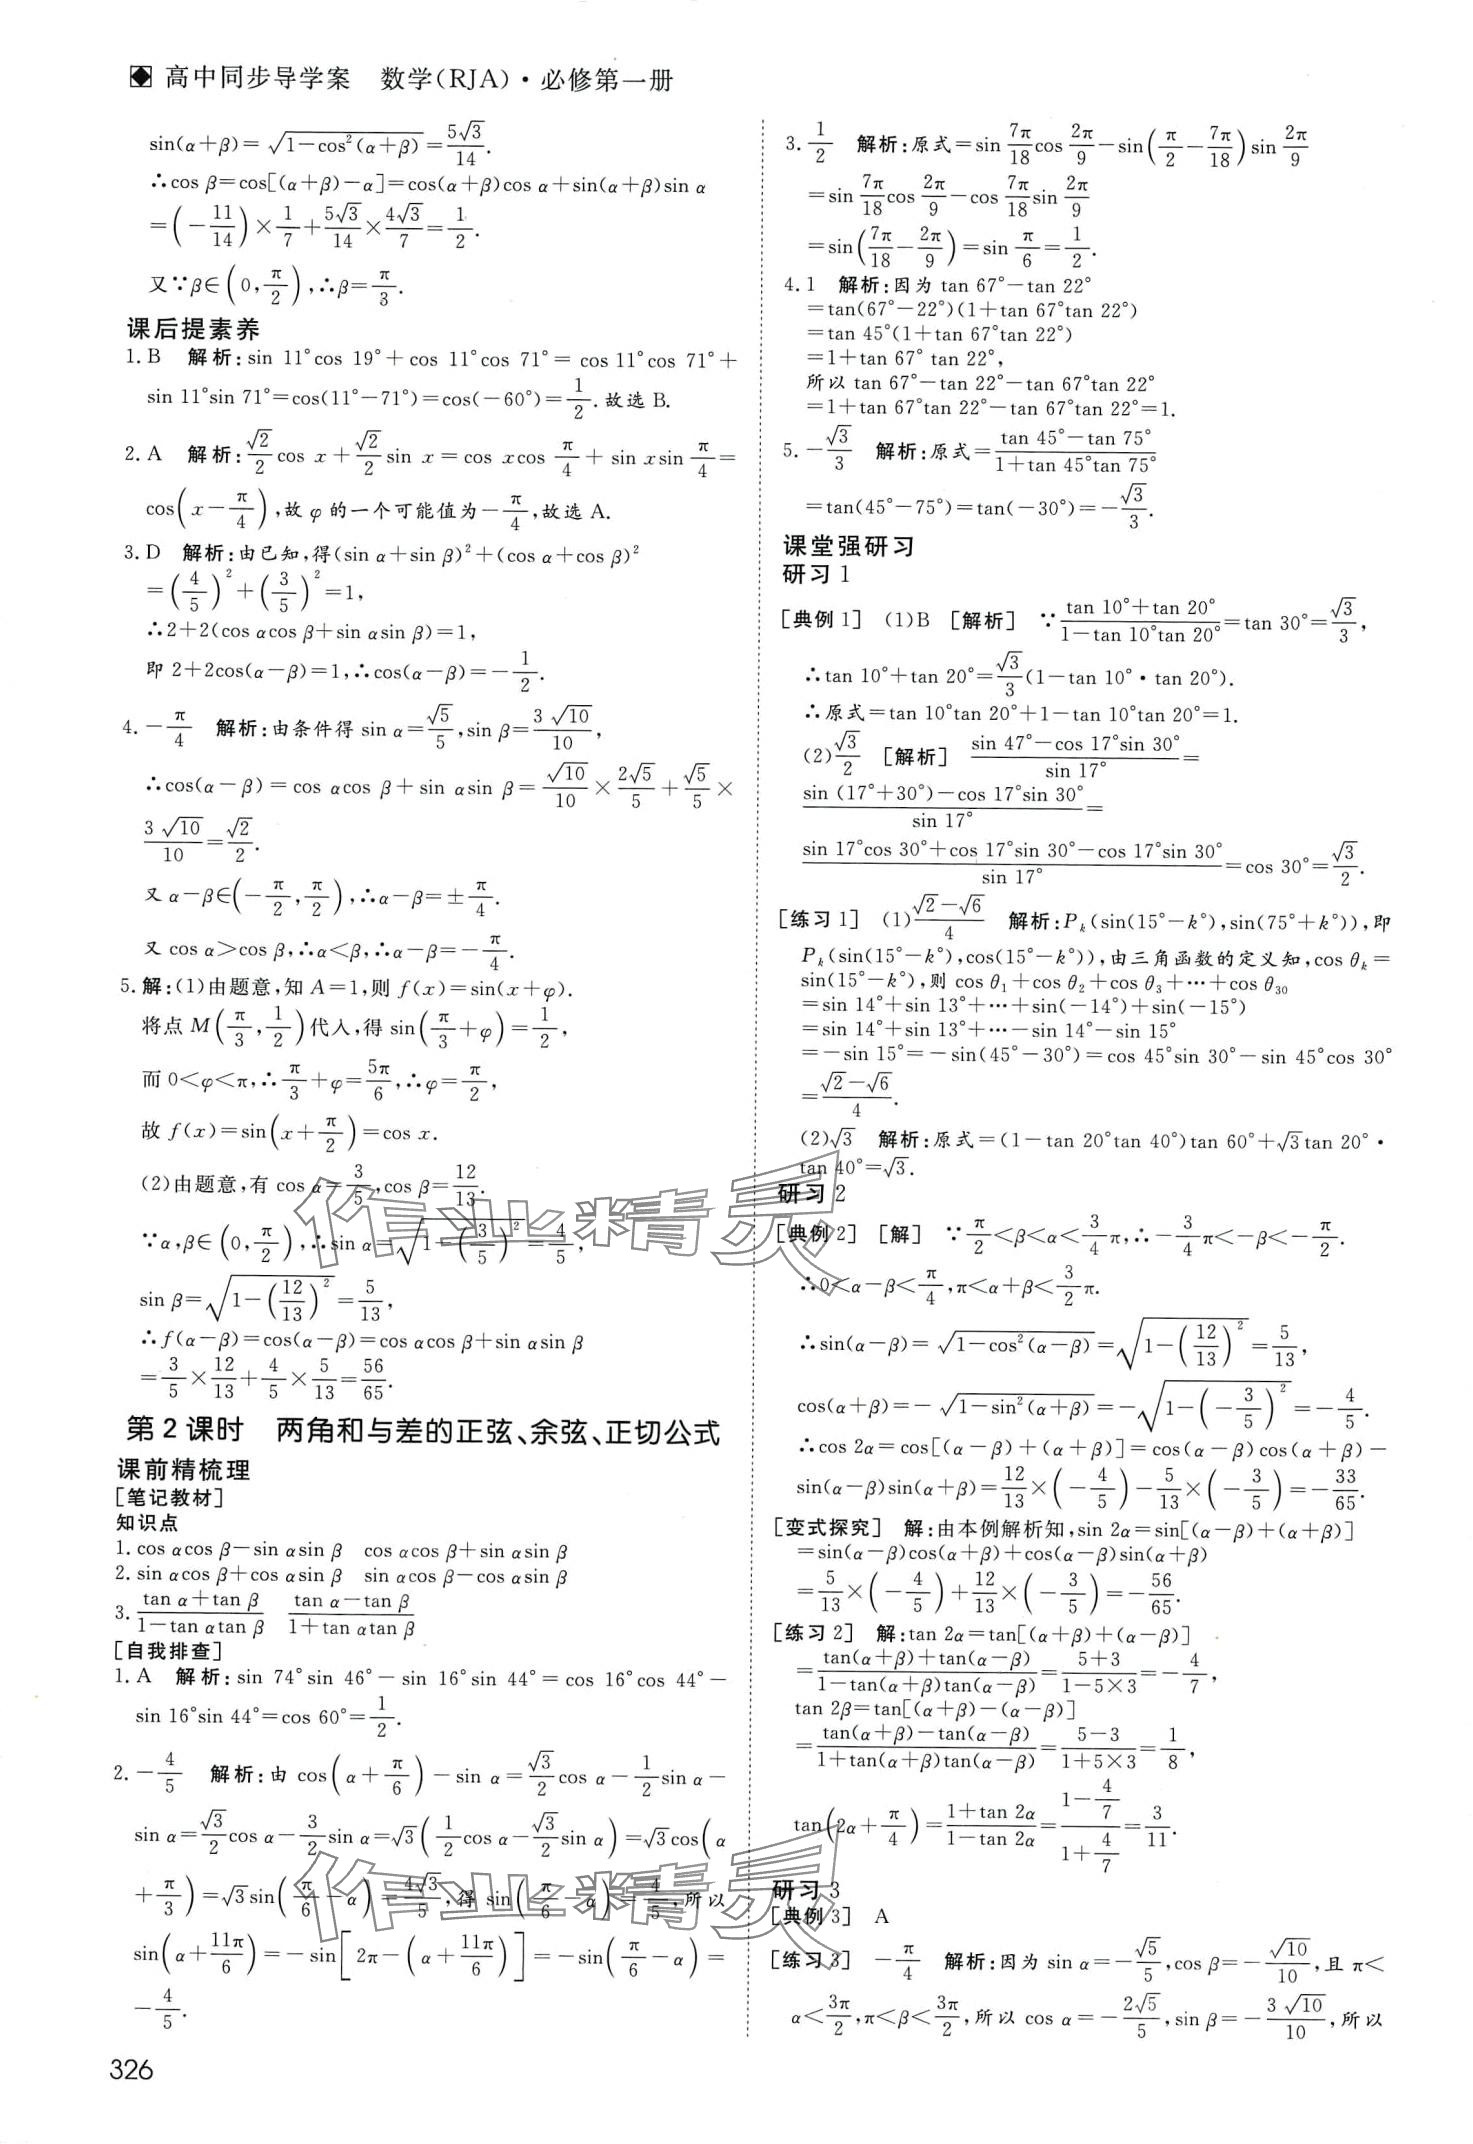 高中同步导学案 数学(RJA)·必修第一册
sin(α+β)=√(1-cos²(α+β))=5√3/14.
∴cos β=cos[(α+β)-α]=cos(α+β)cos α+sin(α+β)sin α
=(-11/14)×1/7+5√3/14×4√3/7=1/2.
又∵β∈(0,π/2),∴β=π/3.
课后提素养
1.B 解析:sin 11°cos 19°+cos 11°cos 71°=cos 11°cos 71°+
sin 11°sin 71°=cos(11°-71°)=cos(-60°)=1/2.故选B.
2.A 解析:√2/2cos x+√2/2sin x=cos xcos π/4+sin xsin π/4=
cos(x-π/4),故φ的一个可能值为-π/4,故选A.
3.D 解析:由已知,得(sin α+sin β)²+(cos α+cos β)²
=(4/5)²+(3/5)²=1,
∴2+2(cos αcos β+sin αsin β)=1,
即2+2cos(α-β)=1,∴cos(α-β)=-1/2.
4.-π/4 解析:由条件得sin α=√5/5,sin β=3√10/10,
∴cos(α-β)=cos αcos β+sin αsin β=√10/10×2√5/5+√5/5×
3√10/10=√2/2.
又α-β∈(-π/2,π/2),∴α-β=±π/4.
又cos α>cos β,∴α<β,∴α-β=-π/4.
5.解:(1)由题意,知A=1,则f(x)=sin(x+φ).
将点M(π/3,1/2)代入,得sin(π/3+φ)=1/2,
而0<φ<π,∴π/3+φ=5π/6,∴φ=π/2,
故f(x)=sin(x+π/2)=cos x.
(2)由题意,有cos α=3/5,cos β=12/13.
∵α,β∈(0,π/2),∴sin α=√(1-(3/5)²)=4/5,
sin β=√(1-(12/13)²)=5/13,
∴f(α-β)=cos(α-β)=cos αcos β+sin αsin β
=3/5×12/13+4/5×5/13=56/65.
第2课时 两角和与差的正弦、余弦、正切公式
课前精梳理
[笔记教材]
知识点
1.cos αcos β-sin αsin β cos αcos β+sin αsin β
2.sin αcos β+cos αsin β sin αcos β-cos αsin β
3.(tan α+tan β)/(1-tan αtan β) (tan α-tan β)/(1+tan αtan β)
[自我排查]
1.A 解析:sin 74°sin 46°-sin 16°sin 44°=cos 16°cos 44°-
sin 16°sin 44°=cos 60°=1/2.
2.-4/5 解析:由cos(α+π/6)-sin α=√3/2cos α-1/2sin α-
sin α=√3/2cos α-3/2sin α=√3(1/2cos α-√3/2sin α)=√3cos(α
+π/3)=√3sin(π/6-α)=4√3/5,得sin(π/6-α)=4/5,所以
sin(α+11π/6)=-sin[2π-(α+11π/6)]=-sin(π/6-α)=
-4/5.
326
3.1/2 解析:原式=sin 7π/18cos 2π/9-sin(π/2-7π/18)sin 2π/9
=sin 7π/18cos 2π/9-cos 7π/18sin 2π/9
=sin(7π/18-2π/9)=sin π/6=1/2.
4.1 解析:因为tan 67°-tan 22°
=tan(67°-22°)(1+tan 67°tan 22°)
=tan 45°(1+tan 67°tan 22°)
=1+tan 67°tan 22°,
所以tan 67°-tan 22°-tan 67°tan 22°
=1+tan 67°tan 22°-tan 67°tan 22°=1.
5.-√3/3 解析:原式=(tan 45°-tan 75°)/(1+tan 45°tan 75°)
=tan(45°-75°)=tan(-30°)=-√3/3.
课堂强研习
研习1
[典例1] (1)B [解析] ∵(tan 10°+tan 20°)/(1-tan 10°tan 20°)=tan 30°=√3/3,
∴tan 10°+tan 20°=√3/3(1-tan 10°·tan 20°).
∴原式=tan 10°tan 20°+1-tan 10°tan 20°=1.
(2)√3/2 [解析] (sin 47°-cos 17°sin 30°)/sin 17°=
(sin (17°+30°)-cos 17°sin 30°)/sin 17°=
(sin 17°cos 30°+cos 17°sin 30°-cos 17°sin 30°)/sin 17°=cos 30°=√3/2.
[练习1] (1)(√2-√6)/4 解析:Pₖ(sin(15°-k°),sin(75°+k°)),即
Pₖ(sin(15°-k°),cos(15°-k°)),由三角函数的定义知,cos θₖ=
sin(15°-k°),则cos θ₁+cos θ₂+cos θ₃+⋯+cos θ₃₀
=sin 14°+sin 13°+⋯+sin(-14°)+sin(-15°)
=sin 14°+sin 13°+⋯-sin 14°-sin 15°
=-sin 15°=-sin(45°-30°)=cos 45°sin 30°-sin 45°cos 30°
=(√2-√6)/4.
(2)√3 解析:原式=(1-tan 20°tan 40°)tan 60°+√3tan 20°·
tan 40°=√3.
研习2
[典例2] [解] ∵π/2<β<α<3/4π,∴-3/4π<-β<-π/2.
∴0<α-β<π/4,π<α+β<3/2π.
∴sin(α-β)=√(1-cos²(α-β))=√(1-(12/13)²)=5/13,
cos(α+β)=-√(1-sin²(α+β))=-√(1-(-3/5)²)=-4/5.
∴cos 2α=cos[(α-β)+(α+β)]=cos(α-β)cos(α+β)-
sin(α-β)sin(α+β)=12/13×(-4/5)-5/13×(-3/5)=-33/65.
[变式探究] 解:由本例解析知,sin 2α=sin[(α-β)+(α+β)]
=sin(α-β)cos(α+β)+cos(α-β)sin(α+β)
=5/13×(-4/5)+12/13×(-3/5)=-56/65.
[练习2] 解:tan 2α=tan[(α+β)+(α-β)]
=(tan(α+β)+tan(α-β))/(1-tan(α+β)tan(α-β))=(5+3)/(1-5×3)=-4/7,
tan 2β=tan[(α+β)-(α-β)]
=(tan(α+β)-tan(α-β))/(1+tan(α+β)tan(α-β))=(5-3)/(1+5×3)=1/8,
tan(2α+π/4)=(1+tan 2α)/(1-tan 2α)=(1-4/7)/(1+4/7)=3/11.
研习3
[典例3] A
[练习3] -π/4 解析:因为sin α=-√5/5,cos β=-√10/10,且π<
α<3π/2,π<β<3π/2,所以cos α=-2√5/5,sin β=-3√10/10,所以
作业精灵
作业精灵